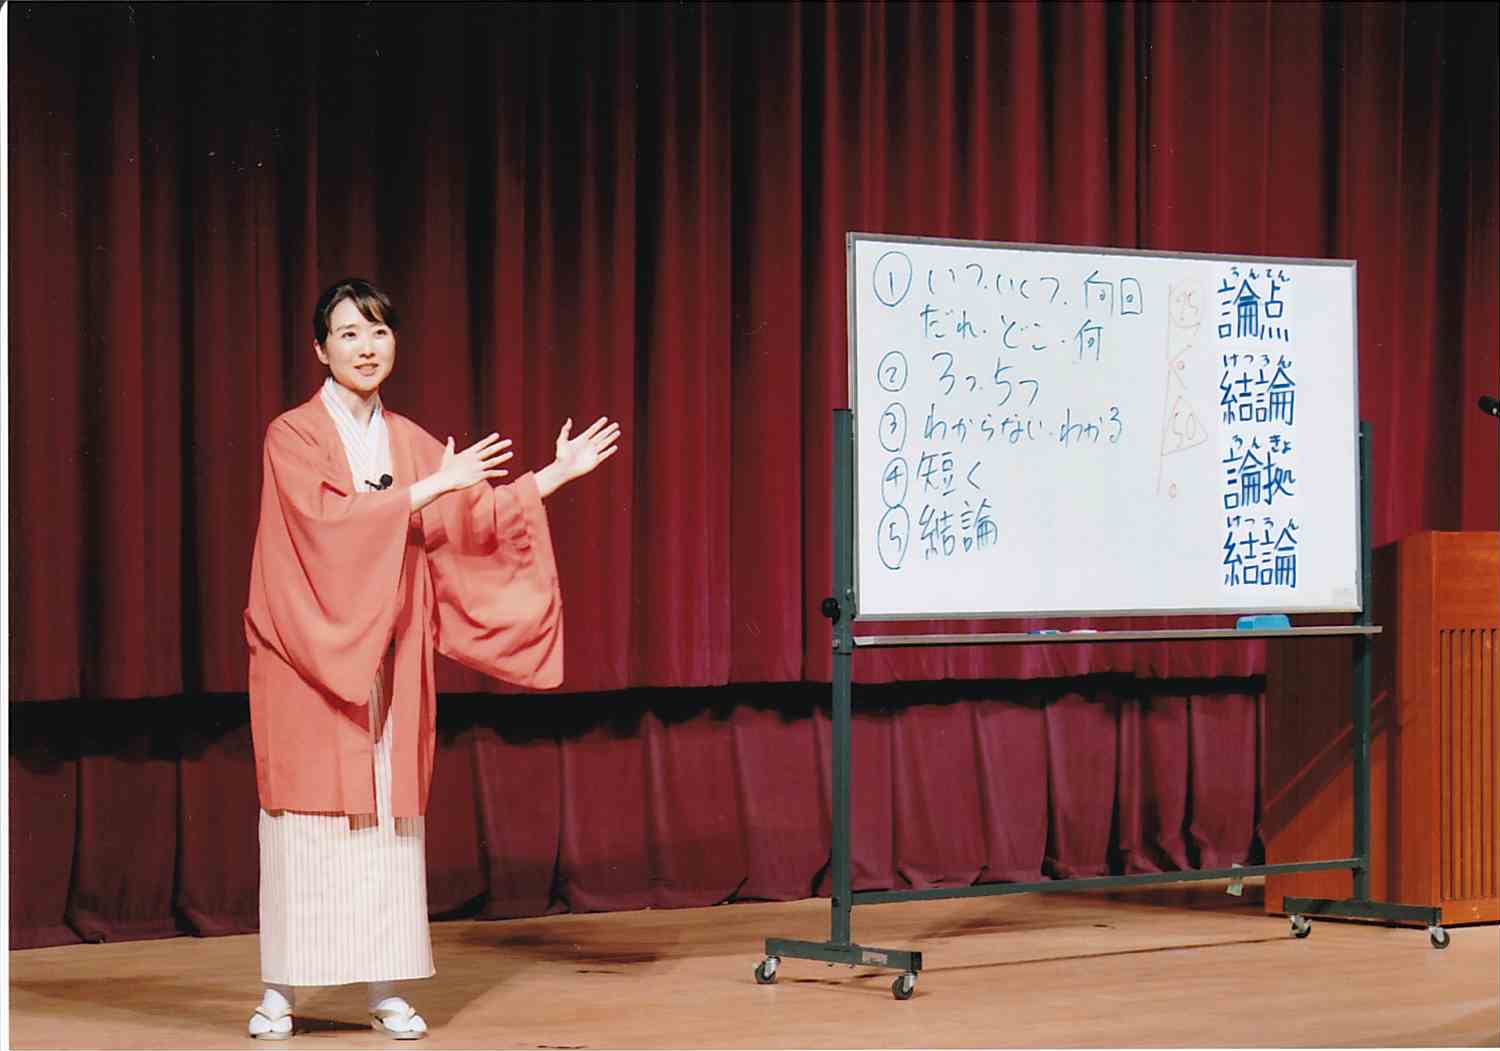 ① いつ.いくつ.何回
だれ.どこ.何
② 3つ.5つ
③ わからない.わかる
④ 短く
⑤ 結論
25
0
50
0
ろんてん
論点
けつろん
結論
ろんきょ
論拠
けつろん
結論